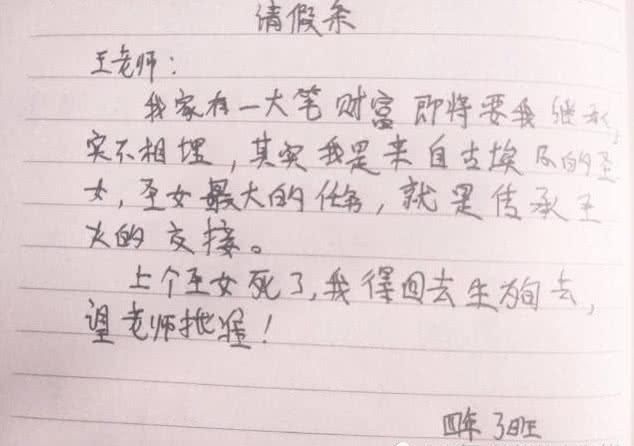 请假条
王老师：
我家有一大笔财富即将要我继承，
实不相埋，其实我是来自古埃及的圣
女，圣女最大的任务，就是传承圣
火的交接。
上个圣女死了，我得回去生为句去，
望老师批准！